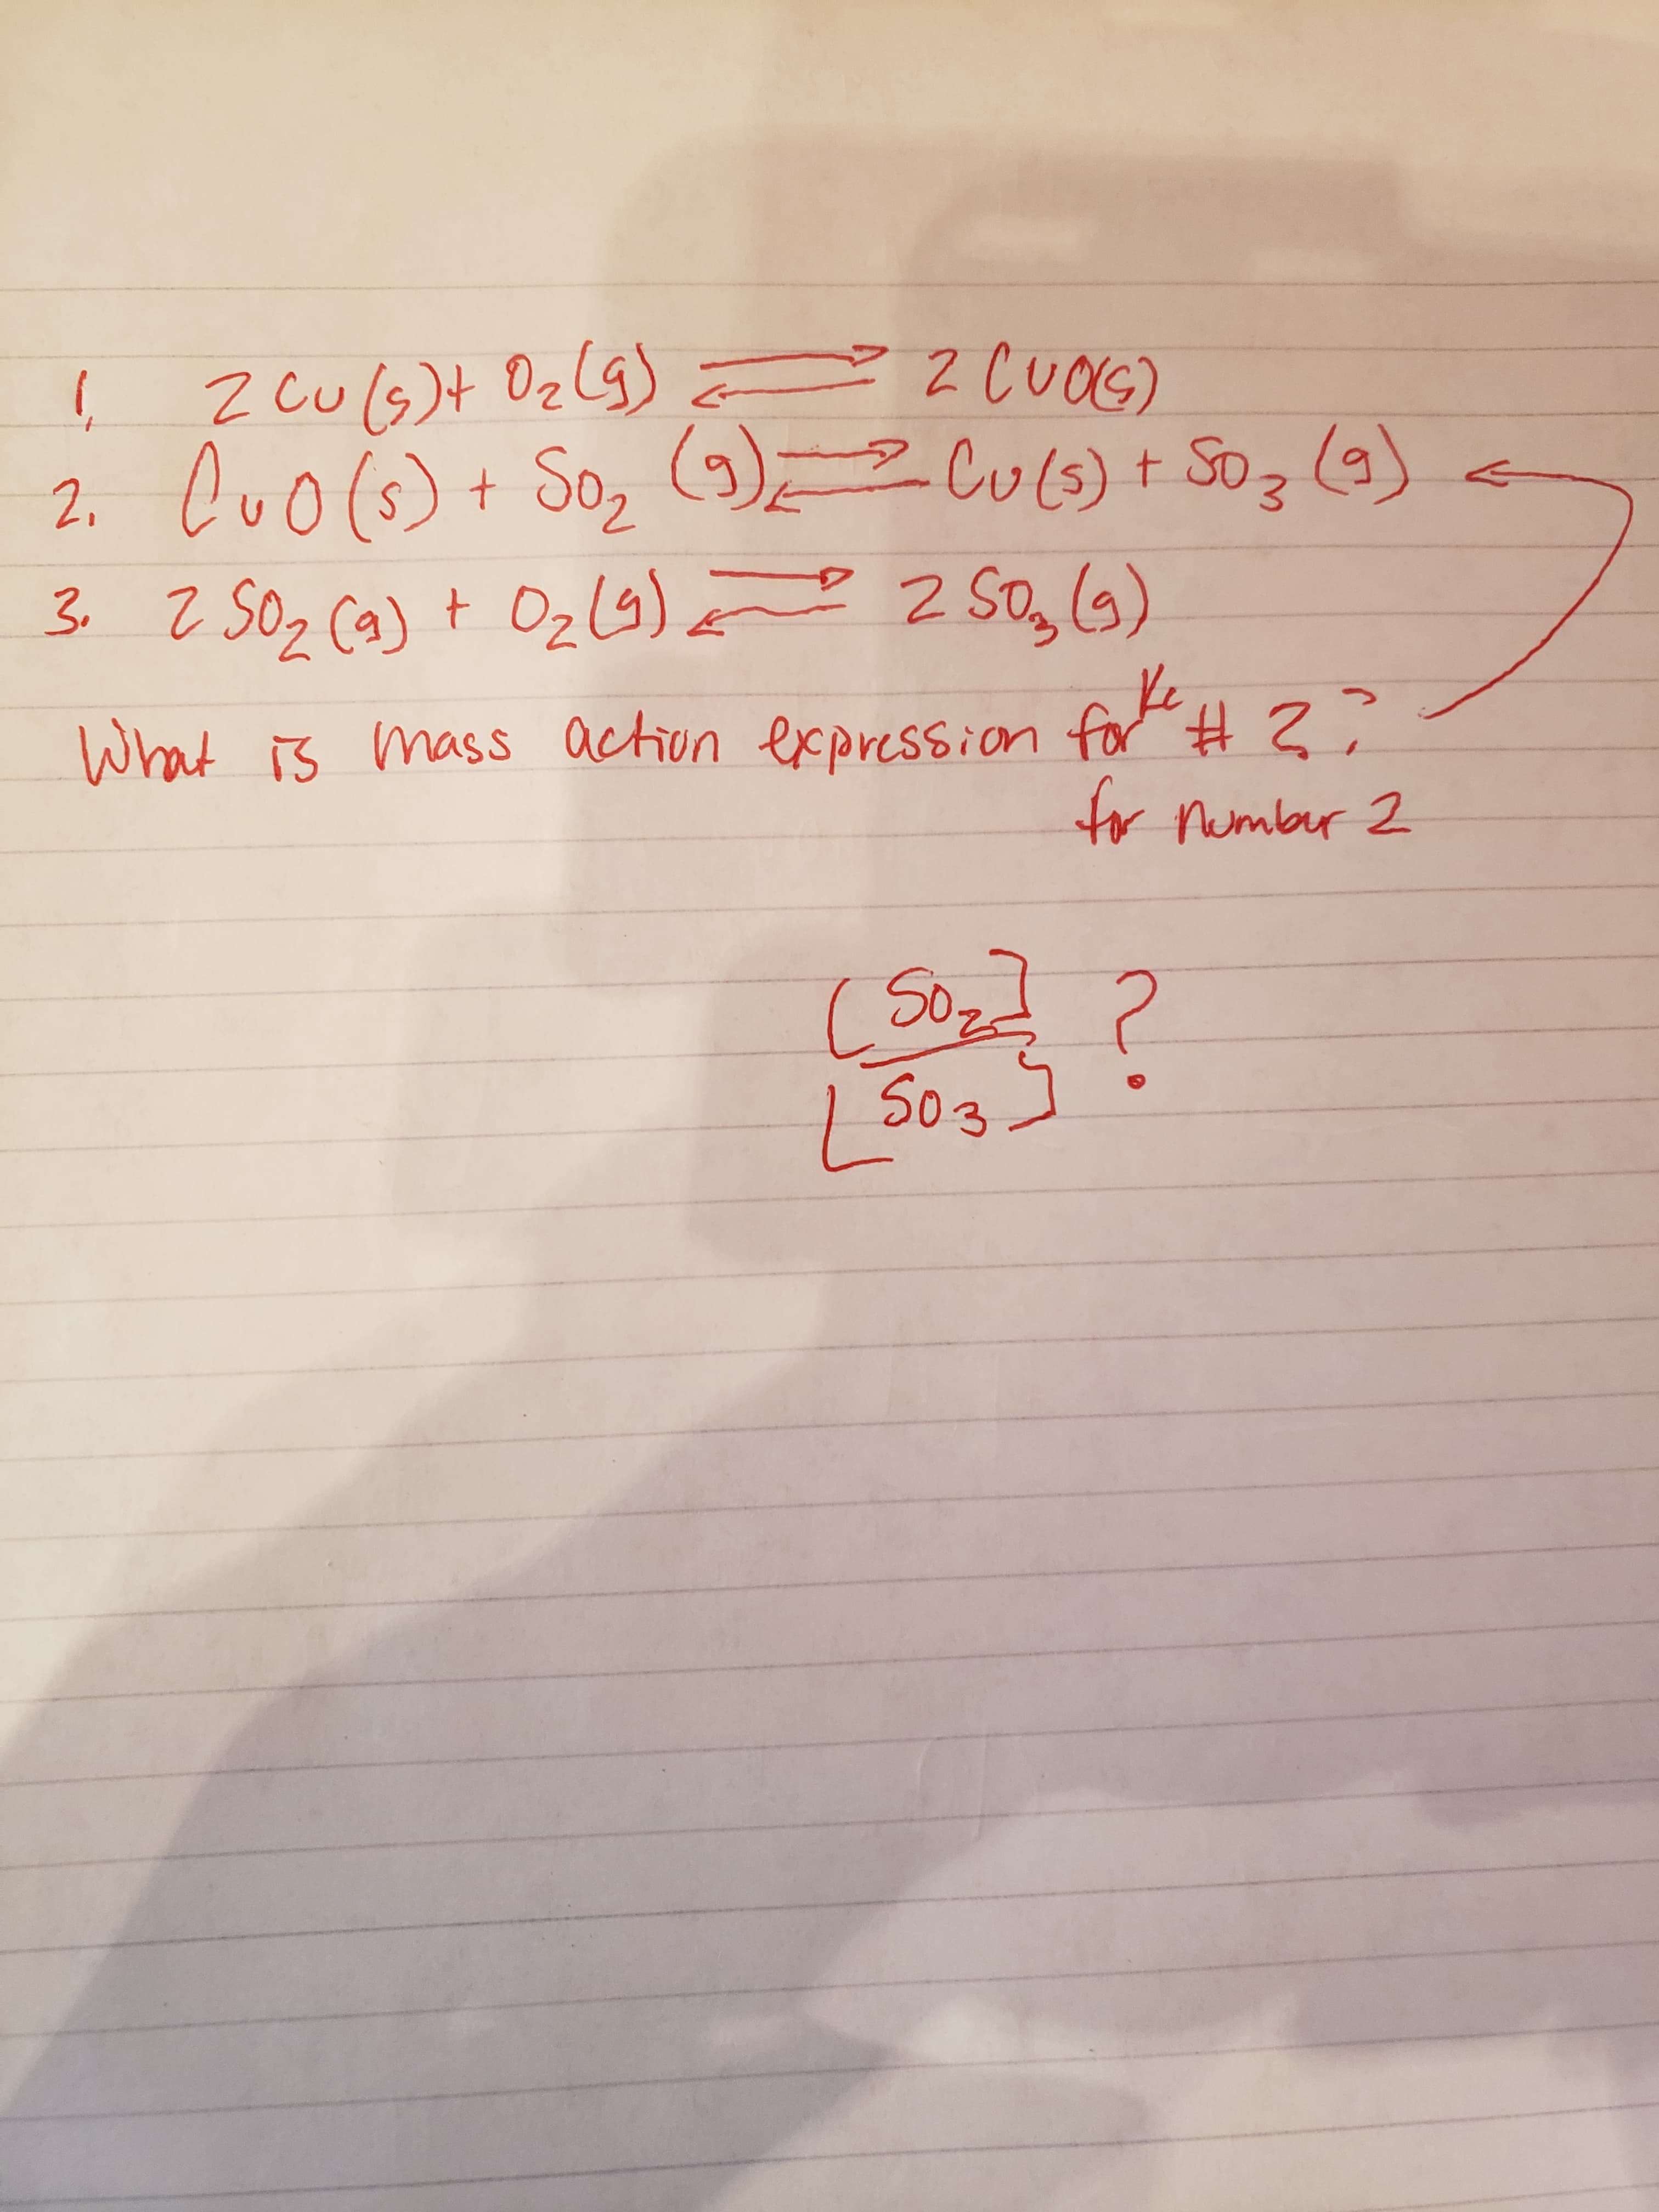 1. 2 Cu (s) + O₂ (g) ⇌ 2 CuO(s)
2. CuO (s) + SO₂ (g) ⇌ Cu (s) + SO₃ (g)
3. 2 SO₂ (g) + O₂ (g) ⇌ 2 SO₃ (g)
What is mass action expression for Kc # 2?
for number 2
[SO₂] ?
[SO₃]